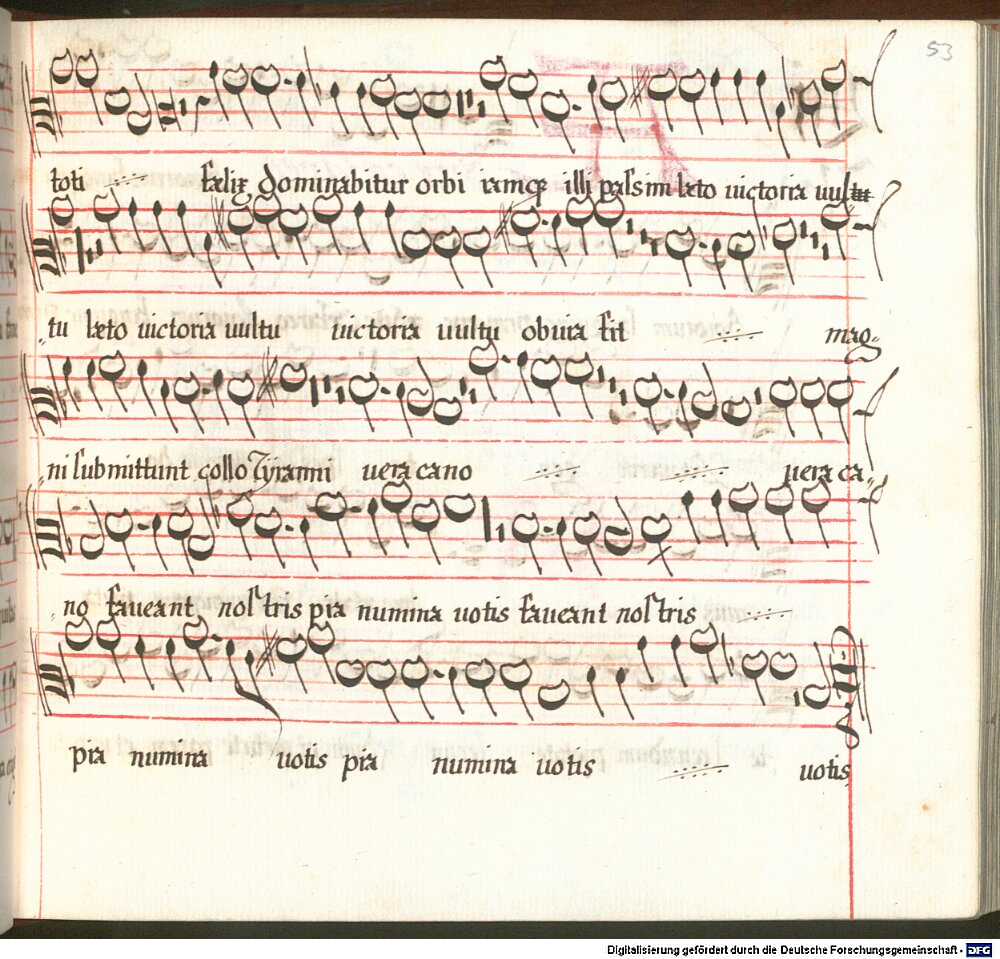 53
toti fælix dominabitur orbi iamq illi passim læto victoria vul
tu læto victoria vultu victoria vultu obvia fit mag-
ni submittunt collo Tyranni vera cano vera ca-
no faveant nostris pia numina votis faveant nostris
pia numina votis pia numina votis votis
Digitalisierung gefördert durch die Deutsche Forschungsgemeinschaft - DFG